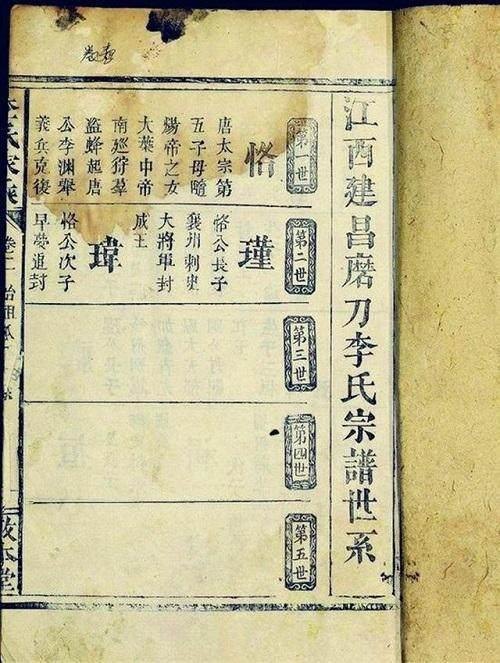 江西建昌磨刀李氏宗譜世系
第一世
恪
唐太宗第
五子母隨
煬帝之女
大業中帝
南廵狩羣
盜蜂起唐
公李渊舉
義兵克復
第二世
瑾
恪公長子
襄州刺史
大將軍封
成王
瑋
恪公次子
早薨追封
第三世
第四世
第五世